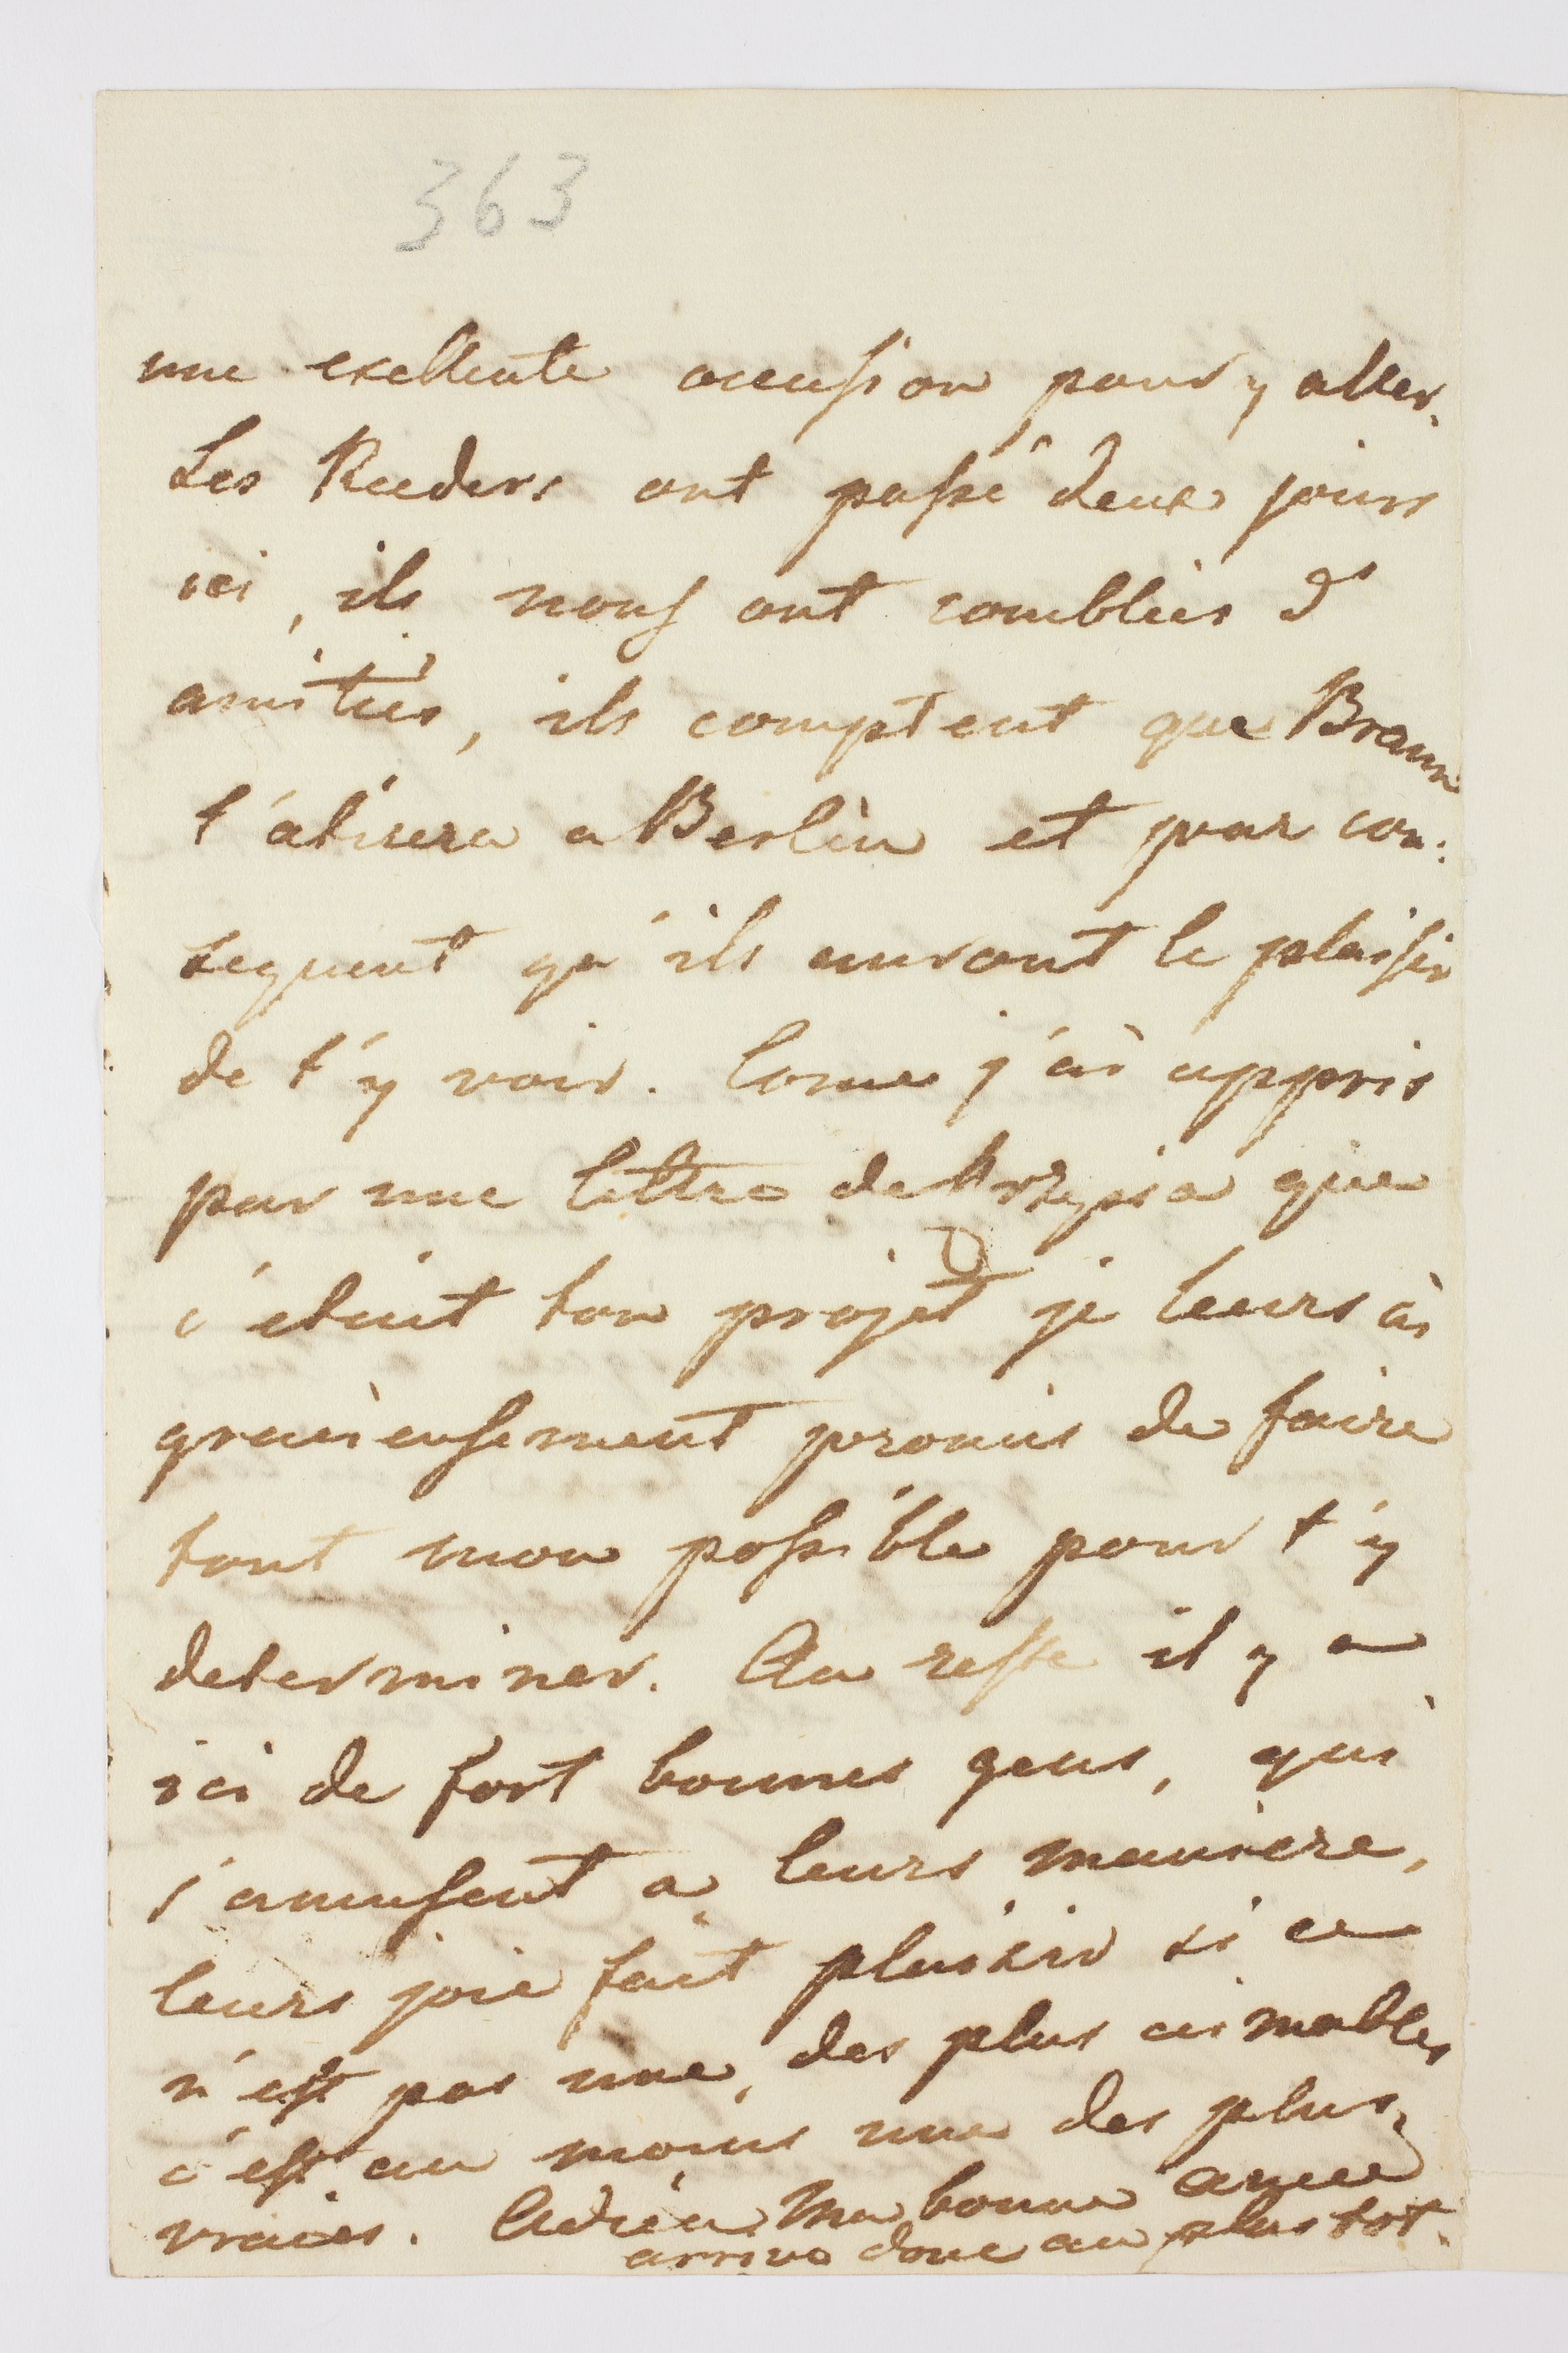 363
une exellente occasion pour y aller.
Les Reeders ont passé deux jours
ici, ils nous ont comblées d'
amitiés, ils comptent que Braun
t'atirera a Berlin et par con:
sequent qu'ils auront le plaisir
de t'y voir. Come j'ai appris
par une lettre de que
c'etait ton projet je leurs ai
gracieusement promis de faire
tout mon possible pour t'y
determiner. Au reste il y a
ici de fort bonnes gens, qui
s'amusent a leurs maniere,
leurs joie fait plaisir si ce
n'est pas une, des plus aimables
c'est au moins une des plus
vraies. Adieu Ma bonne amie
arrive donc au plus tot.